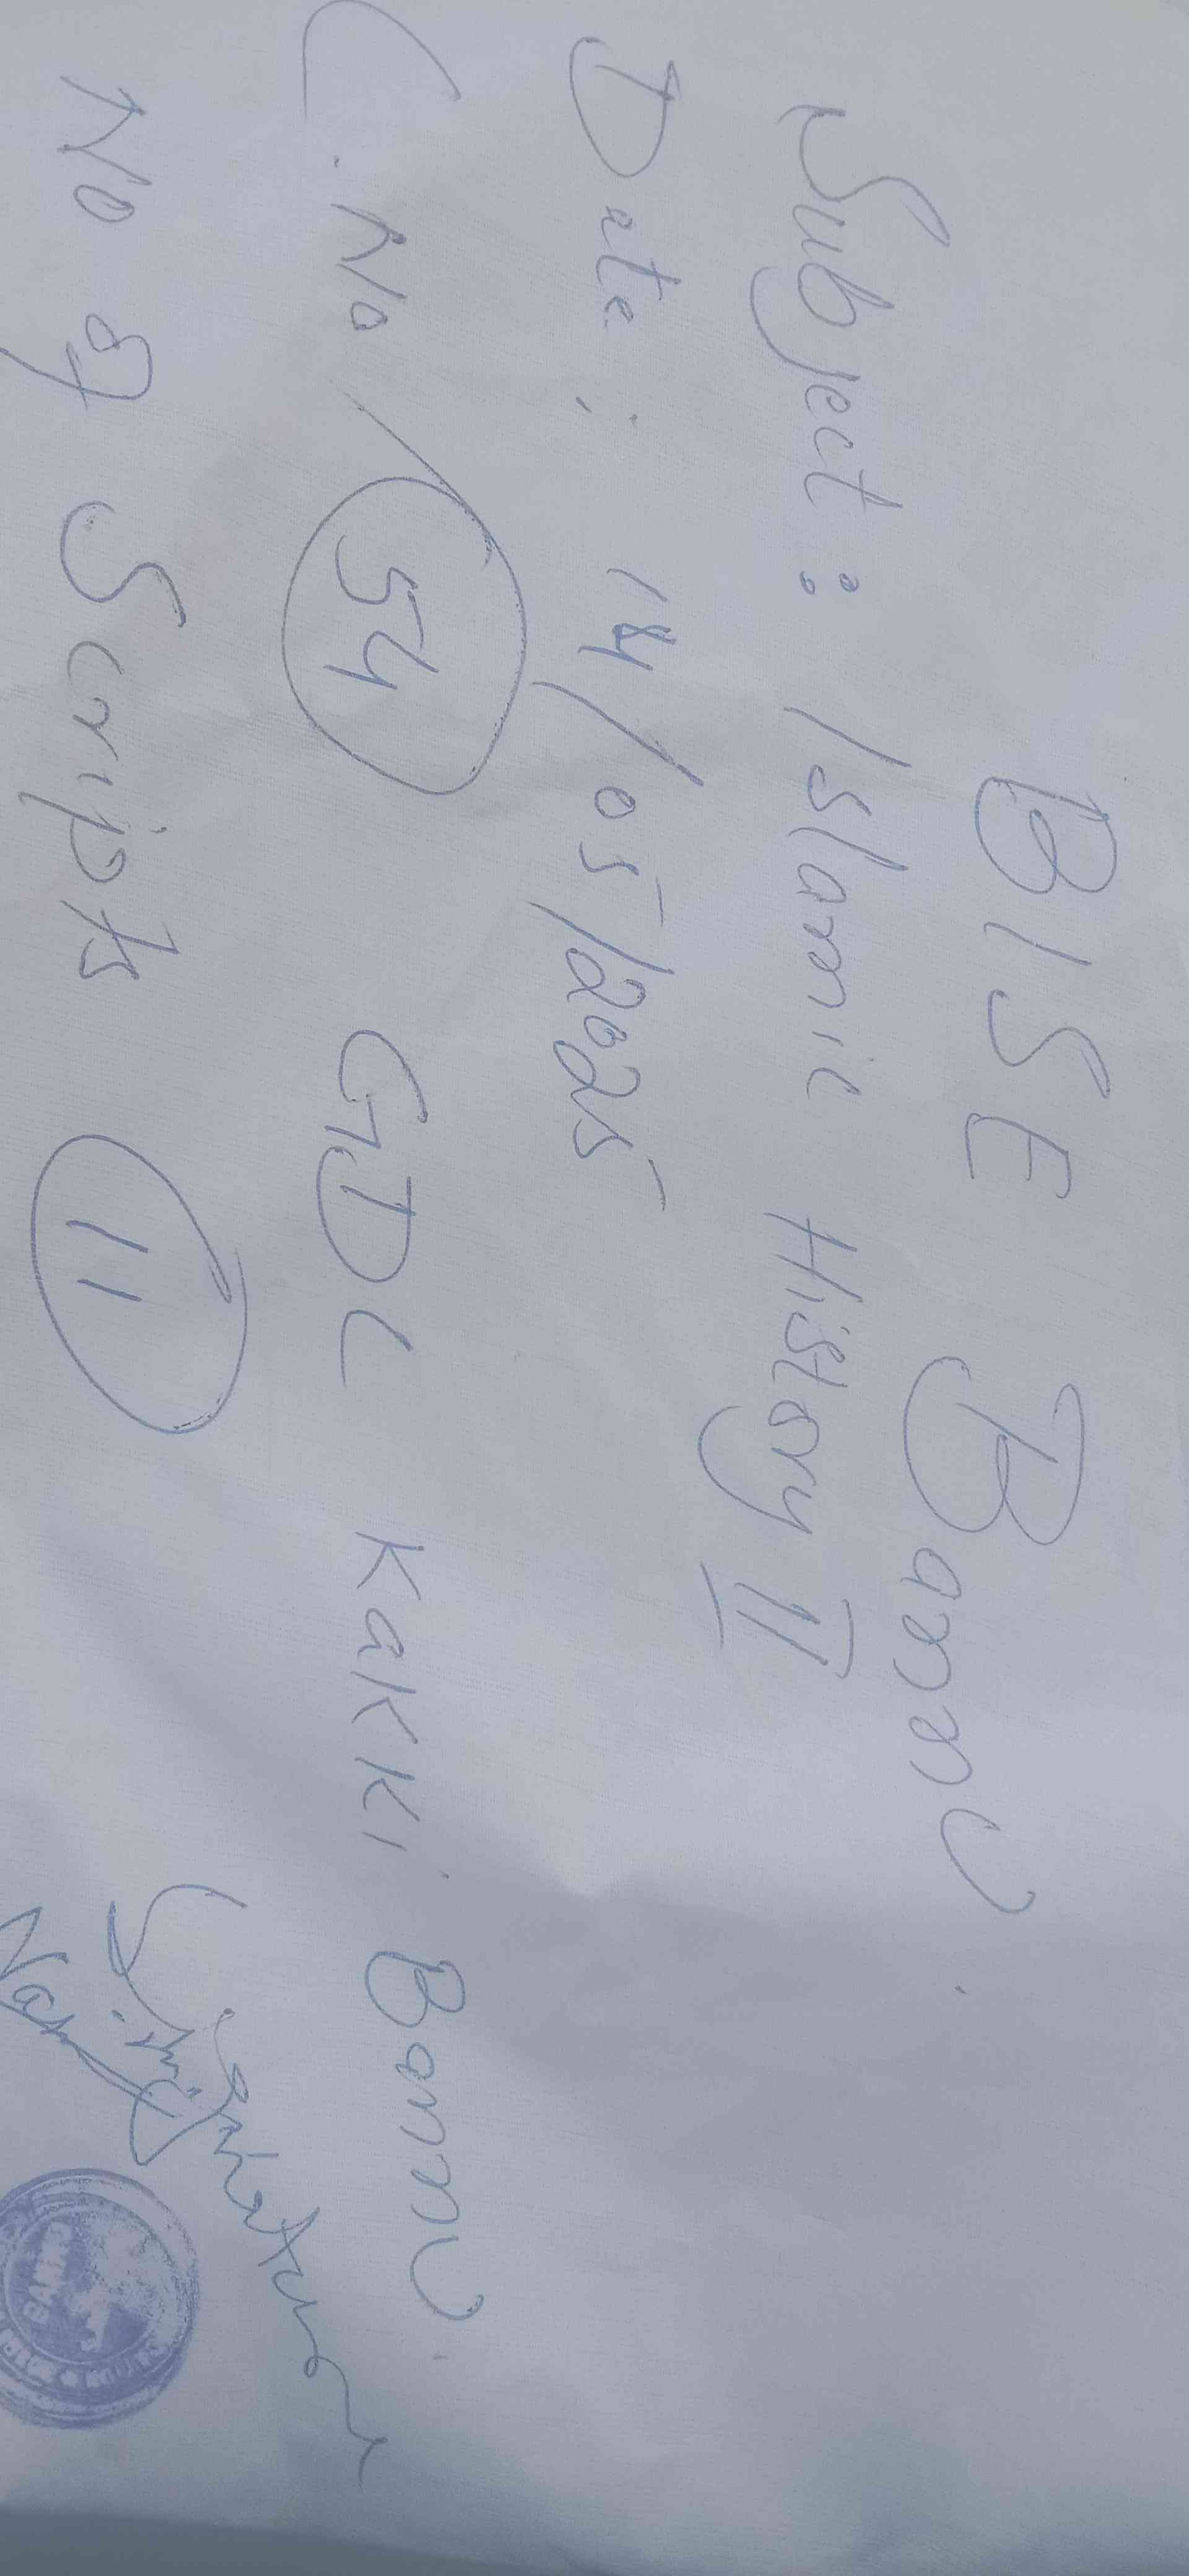 BISE Bannu
Subject: Islamic History II
Date: 14/05/2025
C.No/ 54 GDC Kakki Bannu
No of Scripts 11
Signature